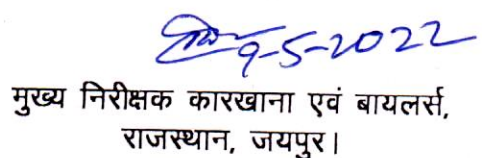 9-5-2022
मुख्य निरीक्षक कारखाना एवं बायलर्स,
राजस्थान, जयपुर।